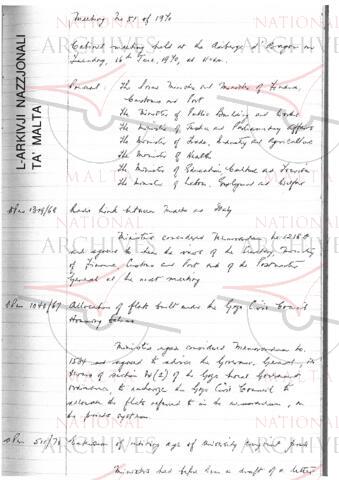 Meeting No 51 of 1970
Cabinet meeting held at the Auberge d'Aragon on
Tuesday, 16th June, 1970, at 11 a.m.
Present: The Prime Minister and Minister of Finance,
Customs and Port
The Minister of Public Building and Works
The Minister of Justice and Parliamentary Affairs
The Minister of Trade, Industry and Agriculture
The Minister of Health
The Minister of Education, Culture and Tourism
The Minister of Labour, Employment and Welfare
L-ARKIVJI NAZZJONALI
TA' MALTA
between Malta and Italy
Ministers considered Memorandum No
and agreed to hear the views of the Ministry
of Finance Customs and Port and of the Postmaster
General at the next meeting
Allocation of flats built under the Gozo Civic Council
Housing Scheme
Ministers again considered Memorandum No.
and agreed to advise the Governor General, in
terms of section (2) of the Gozo Local Government
Ordinance, to authorize the Gozo Civic Council to
allocate the flats referred to in the memorandum, on
the points system.
Extension of retiring age of University
Ministers had before them a draft of a letter
NATIONAL
ARCHIVES
MALTA